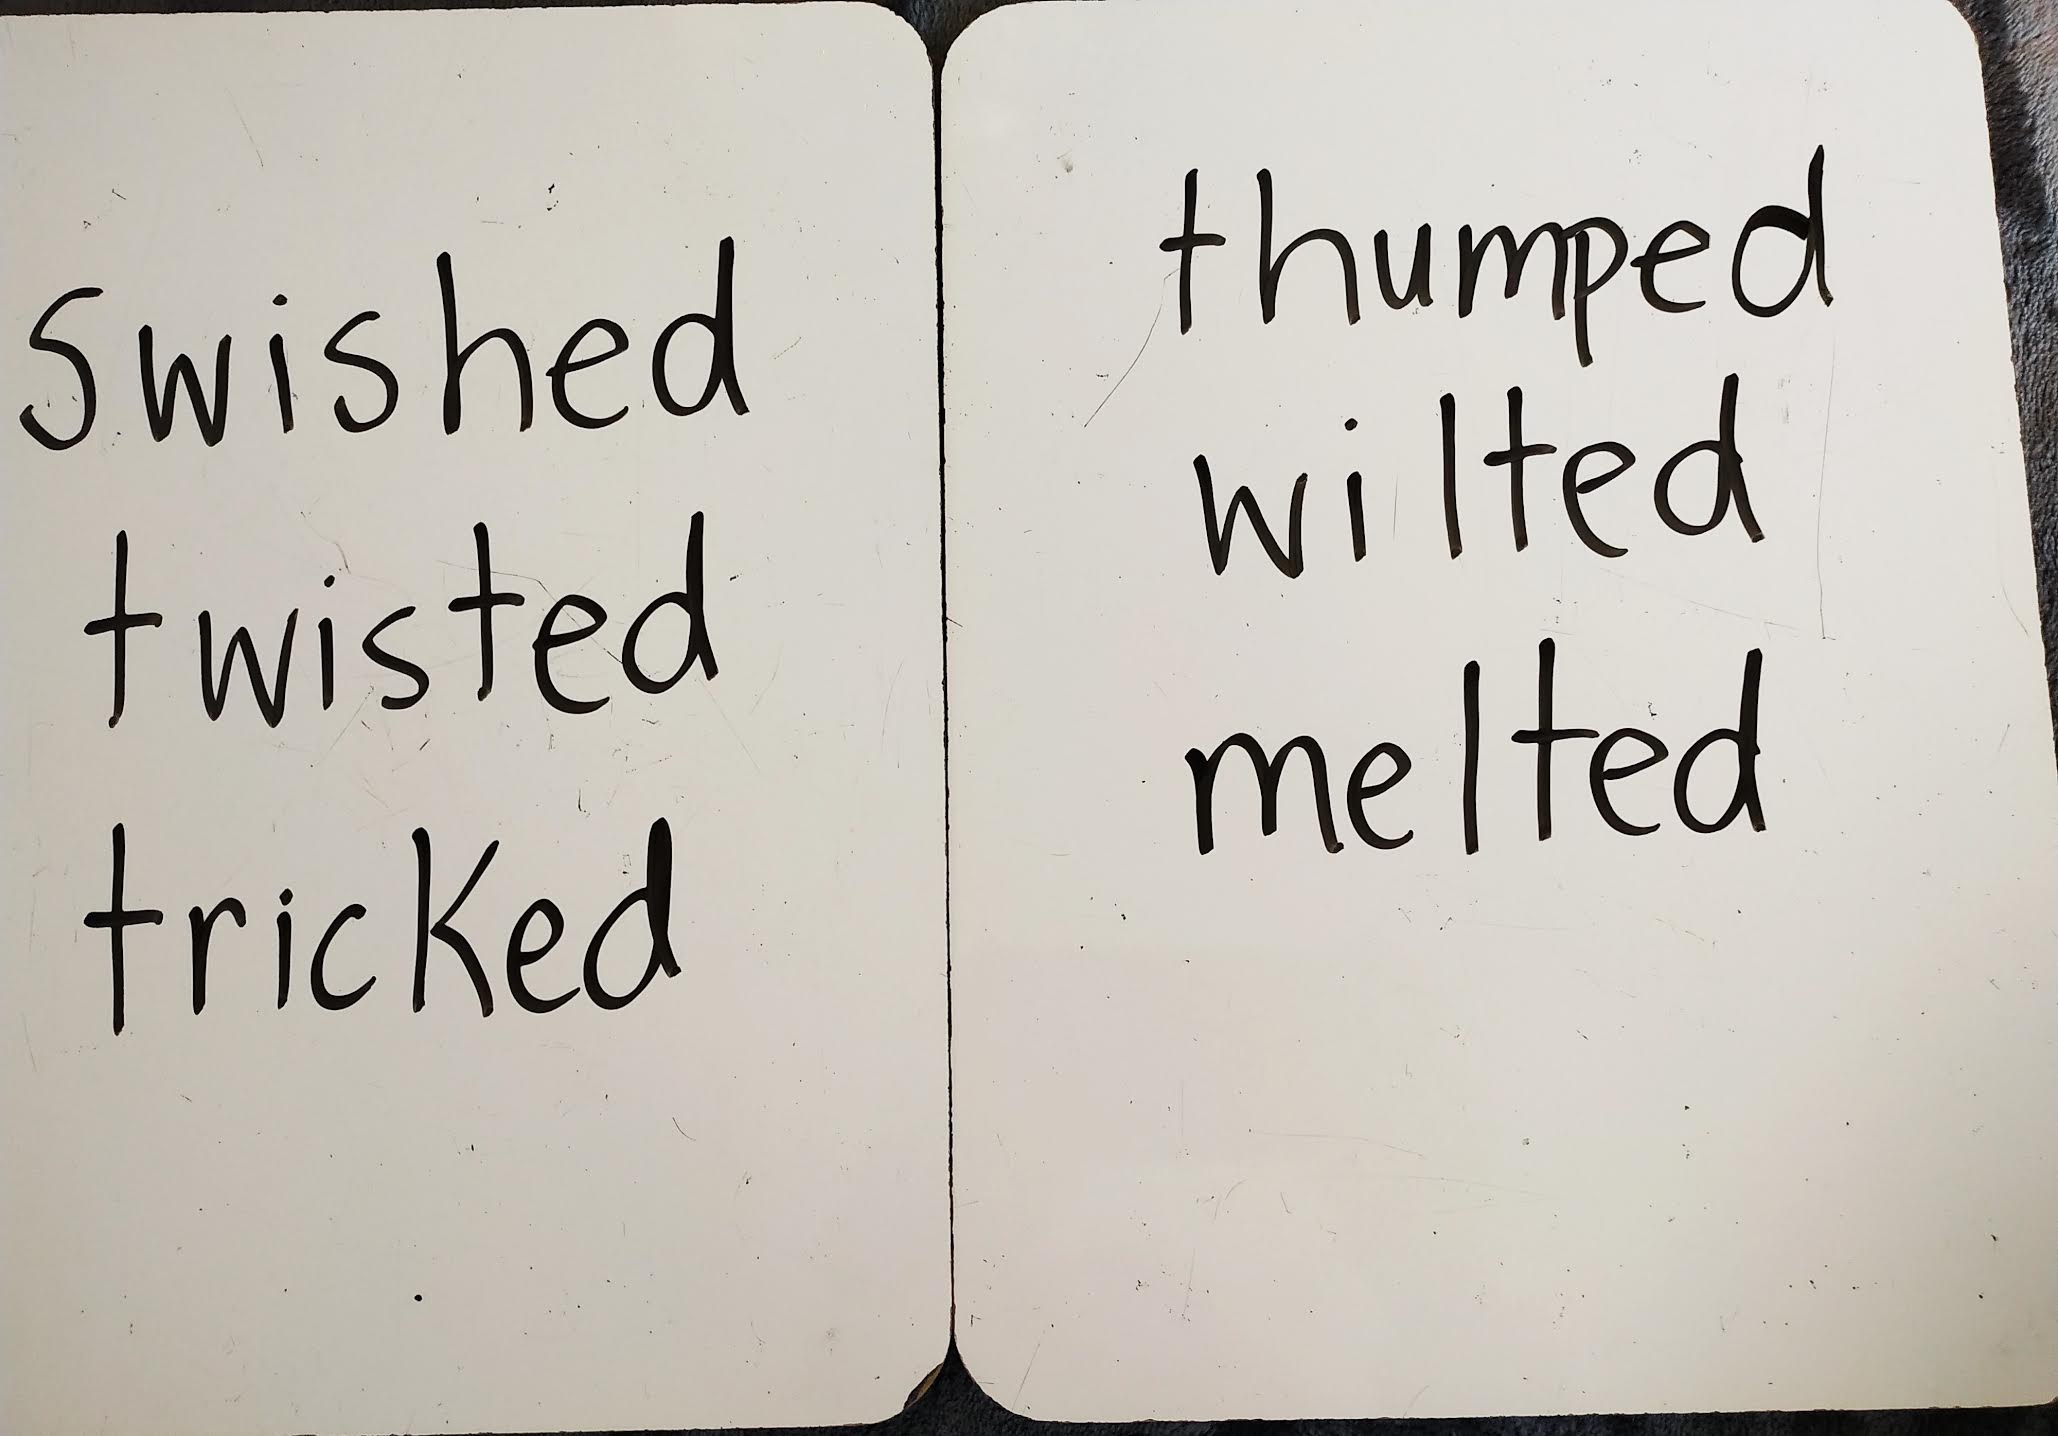 swished
twisted
tricked
thumped
wilted
melted